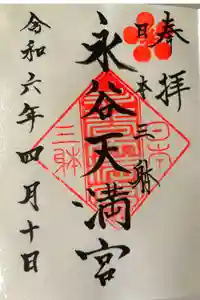 奉拝
日本三躰
永谷天満宮
令和六年四月十日
三躰
日本